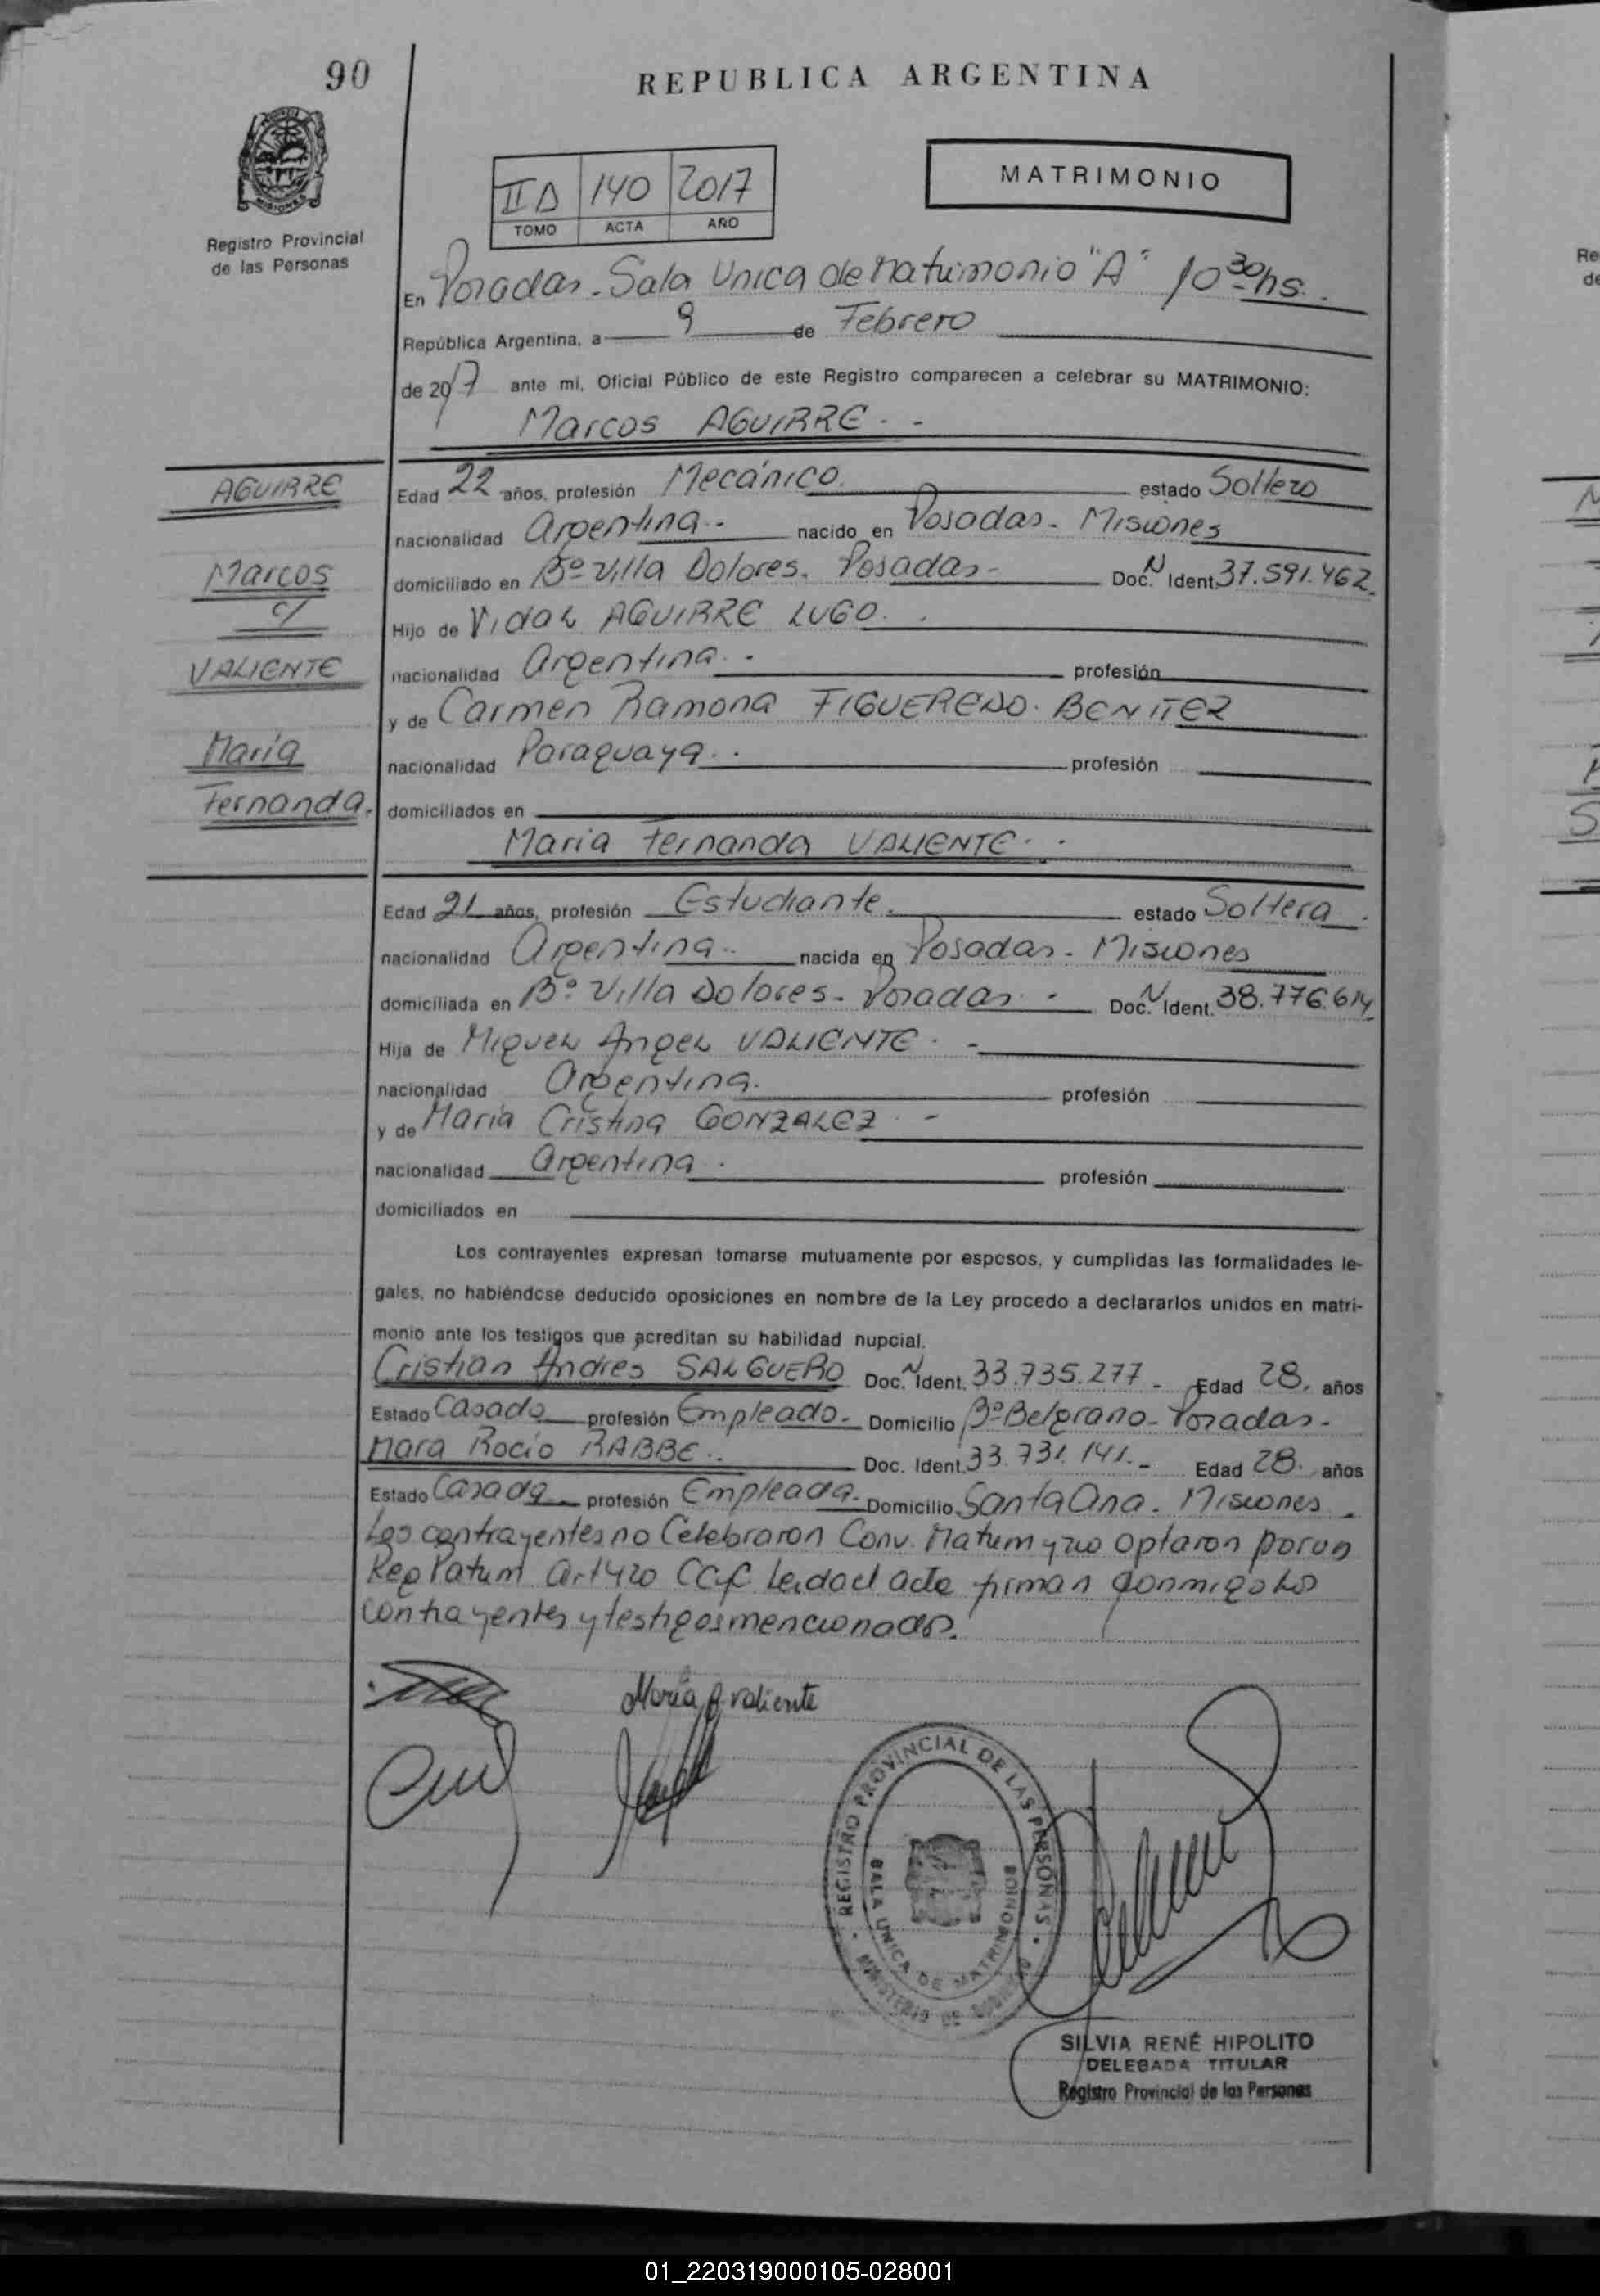 90
REPUBLICA ARGENTINA
MATRIMONIO
II D 140 2017
TOMO ACTA AÑO
MISIONES
Registro Provincial
de las Personas
En Posadas. Sala Unica de Matrimonio "A" 10 30 hs.
República Argentina, a 9 de Febrero
de 2017 ante mi, Oficial Público de este Registro comparecen a celebrar su MATRIMONIO:
Marcos AGUIRRE. -
AGUIRRE
Marcos
c/
VALIENTE
María
Fernanda.
Edad 22 años, profesión Mecánico. estado Soltero
nacionalidad Argentina. nacido en Posadas - Misiones
domiciliado en Bº Villa Dolores. Posadas - Doc. N Ident. 37.591.462.
Hijo de Vidal AGUIRRE LUGO. .
nacionalidad Argentina. - profesión
y de Carmen Ramona FIGUEREDO. BENITEZ
nacionalidad Paraguaya. . profesión
domiciliados en
María Fernanda VALIENTE. .
Edad 21 años, profesión Estudiante. estado Soltera.
nacionalidad Argentina. nacida en Posadas - Misiones
domiciliada en Bº Villa Dolores - Posadas. - Doc. N Ident. 38.776.614
Hija de Miguel Angel VALIENTE. -
nacionalidad Argentina. profesión
y de María Cristina GONZALEZ. -
nacionalidad Argentina. profesión
domiciliados en
Los contrayentes expresan tomarse mutuamente por esposos, y cumplidas las formalidades le-
gales, no habiéndose deducido oposiciones en nombre de la Ley procedo a declararlos unidos en matri-
monio ante los testigos que acreditan su habilidad nupcial.
Cristian Andres SALGUERO Doc. N Ident. 33.735.277 - Edad 28. años
Estado Casado profesión Empleado. Domicilio Bº Belgrano - Posadas -
Mara Rocío RABBE. . Doc. Ident. 33.731.141. - Edad 28. años
Estado Casada profesión Empleada. Domicilio Santa Ana. Misiones.
Los contrayentes no Celebraron Conv. Matrim y no optaron por un
Reg Patrim Art 420 CCyC Leida el acta firman conmigo los
contrayentes y testigos mencionados.
María F Valiente
REGISTRO PROVINCIAL DE LAS PERSONAS
SALA UNICA DE MATRIMONIOS
MINISTERIO DE GOBIERNO
SILVIA RENÉ HIPOLITO
DELEGADA TITULAR
Registro Provincial de las Personas
01_220319000105-028001